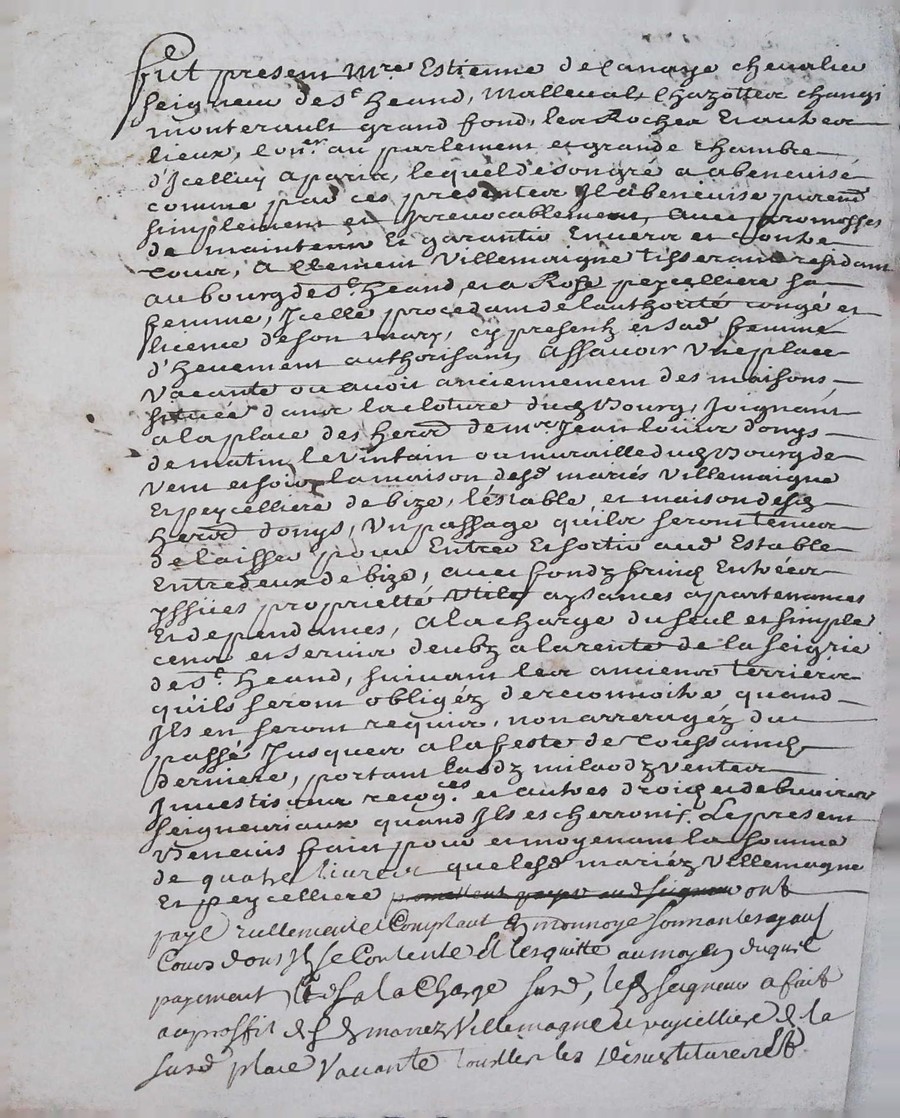 fut present Mre Estienne de Lanaye chevalier
seigneur de st heand, Malleval, Chazottes changi
monterault grand fond, les Rocher Et autres
lieux, Coner au parlement et grande chambre
d'Icelluy a paris, lequel de son gré a abeneuisé
comme par ces presentes Il abeneuise puremt
simplement et Irrevocablement, avec promesses
de maintenir Et garantir Envers et Contre
tous, a Clement Villemaigne tisserand residant
au bourg de st heand, et a Rose peycelliere sa
femme, Icelle procedant de l'authorité congé et
licence de son mary, cy present et sad femme
d'heuement authorisant, assavoir Une place
Vacante ou avoit anciennement des maisons,
située dans la cloture dud Bourg, Joignant
a la place des herers de mr Jean louis donys
de matin, le Vintain ou muraille dud Bourg de
Vent et soir, la maison desd mariés Villemaigne
Et peycelliere de bize, l'estable et maison desd
herers donys, Un passage qu'ils seront tenus
de laisser pour Entrer Et sortir aud Estable
Entre deux de bize, avec fondz frind Entrées
yssües proprietté aysances appartenances
Et dependances, a la charge du seul et simple
cens et servis deubz a la rente de la seigrie
de st heand, suivant les anciens terriers
qu'ils seront obligéz de reconnoitre quand
Ils en seront requis, non arreragéz du
passé Jusques a la feste de toussaindz
derniere, portant laodz milaodz Ventes
Investisons recogces et autres droigts et debvoirs
seigneuriaux quand Ils escherront. Le present
Beneuis fait pour et moyenant la somme
de quatre livres que lesd mariez Villemagne
Et peycelliere promettent payer aud seigneur ont
payé réellement Comptant En monnoye sonnante ayant
Cours dont Il se Contente Et les quitte au moyen duquel
payement, Et de la Charge susd, led seigneur a fait
au proffit desd mariez Villemagne et peycelliere de la
susd place Vacante touttes les Desvestitures Et